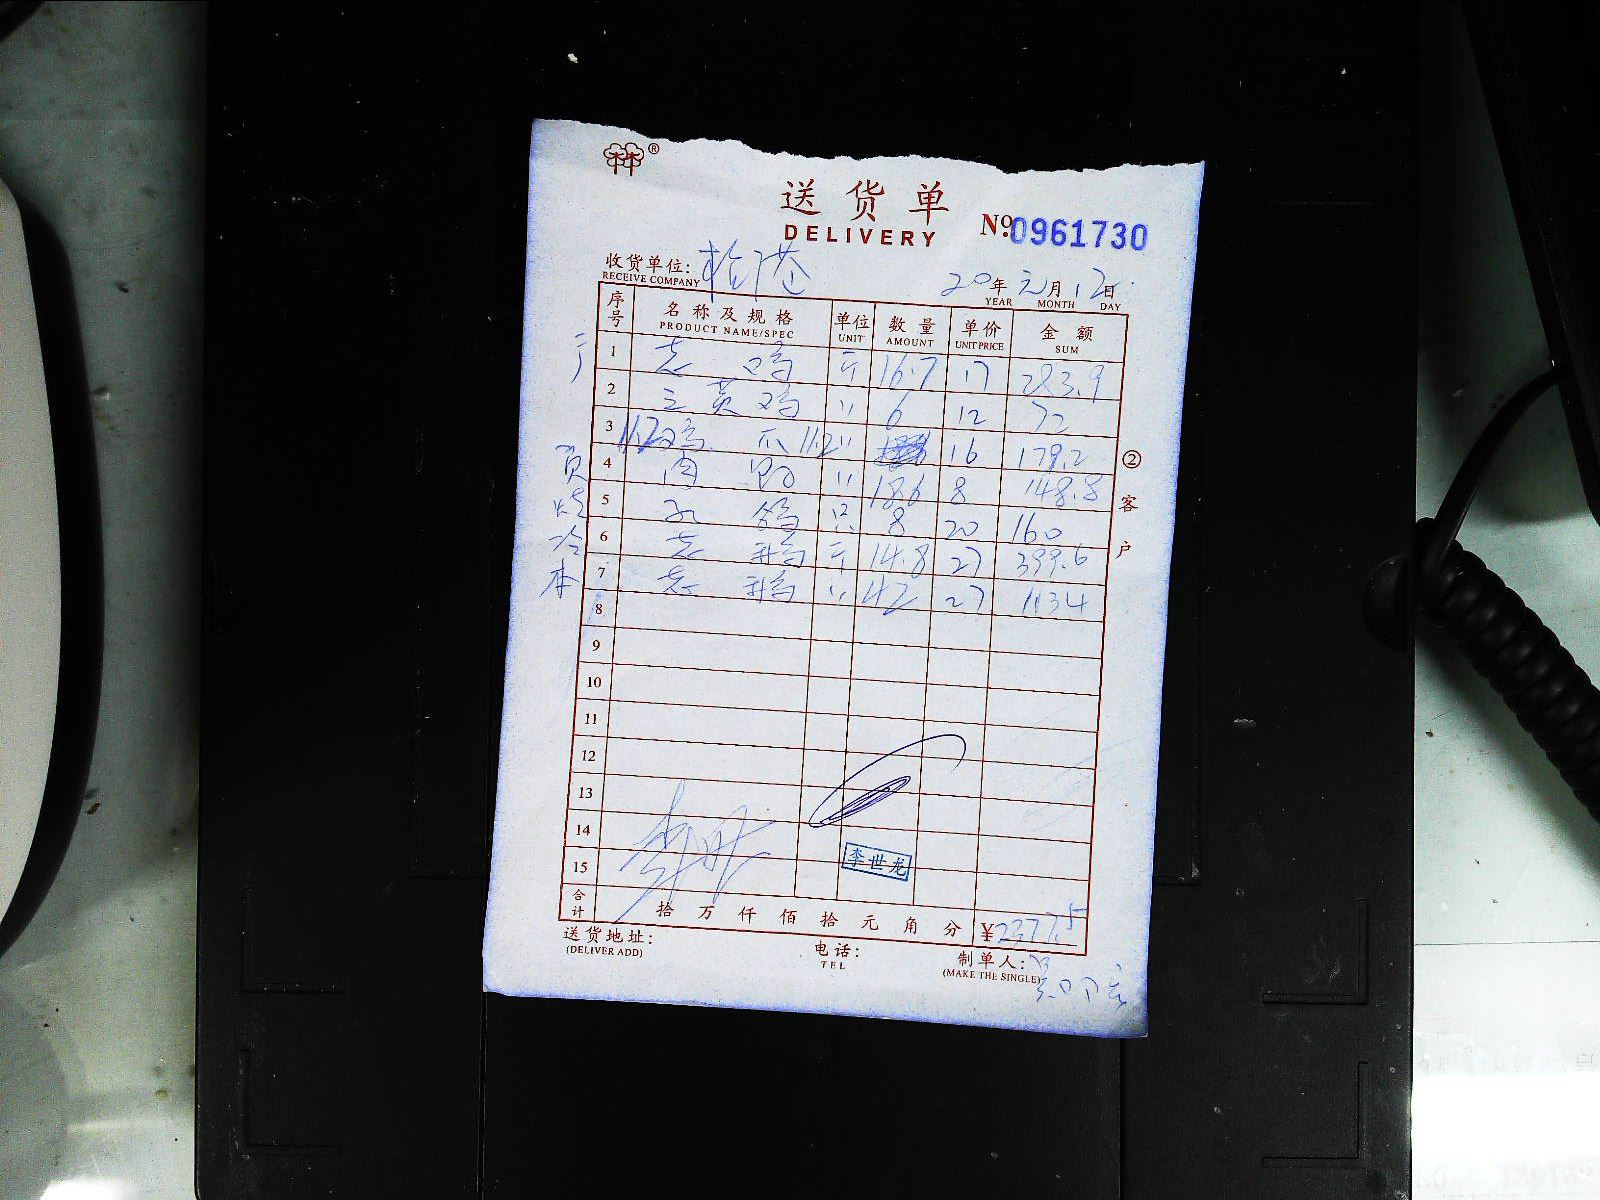 ®
送货单
DELIVERY № 0961730
收货单位:
RECEIVE COMPANY
20年 元月 12日
YEAR MONTH DAY
序号 名称及规格 单位 数量 单价 金额
PRODUCT NAME/SPEC UNIT AMOUNT UNIT PRICE SUM
1 老鸡 斤 16.7 17 283.9
2 三黄鸡 〃 6 12 72
3 11.2 鸡爪 11.2 〃 16 179.2
4 肉 〃 18.6 8 148.8
5 乳鸽 只 8 20 160
6 老鹅 斤 14.8 27 399.6
7 老鹅 〃 42 27 1134
8
9
10
11
12
13
14
15
李世龙
合计 拾万仟佰拾元角分 ¥2377.5
送货地址: 电话: 制单人:
(DELIVER ADD) TEL (MAKE THE SINGLE)
②客户
烧
冷